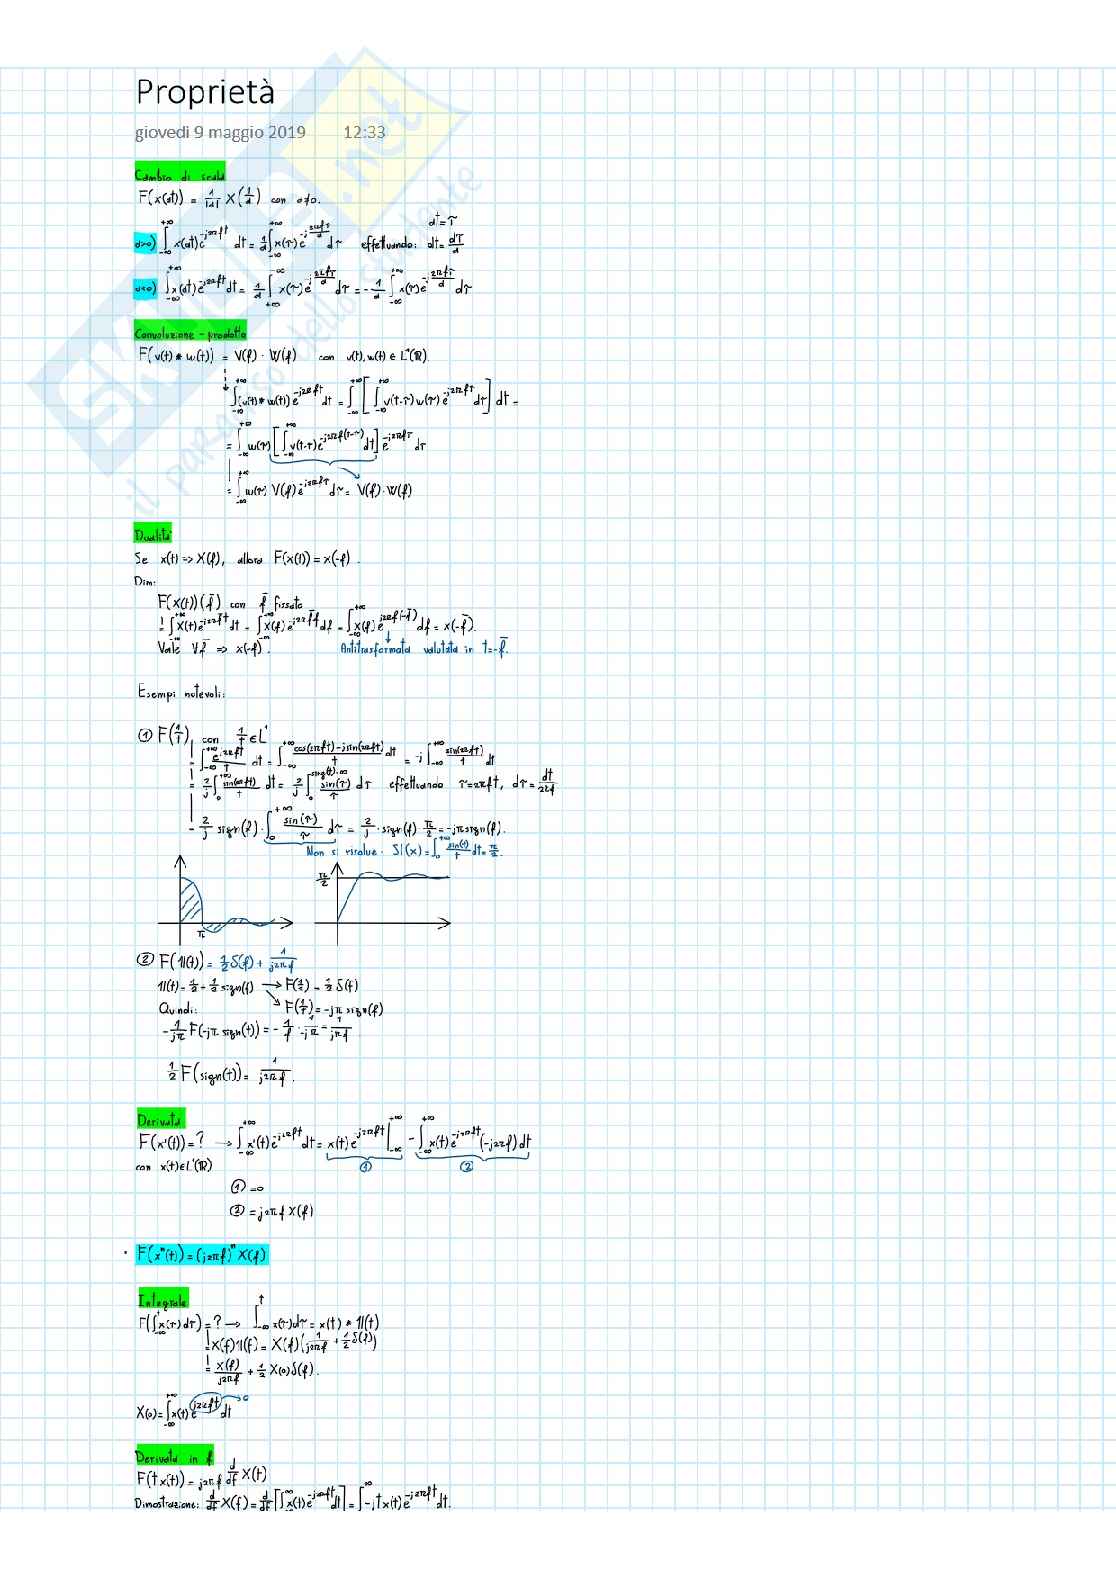 Proprietà
giovedì 9 maggio 2019 12:33
Cambio di scala
F(x(at)) = 1/|a| X(f/a) con a≠0.
a>0) ∫_{-∞}^{+∞} x(at)e^{-j2πft} dt = 1/a ∫_{-∞}^{+∞} x(τ)e^{-j2πfτ/a} dτ effettuando: at=τ dt=dτ/a
a<0) ∫_{-∞}^{+∞} x(at)e^{-j2πft} dt = 1/a ∫_{+∞}^{-∞} x(τ)e^{-j2πfτ/a} dτ = -1/a ∫_{-∞}^{+∞} x(τ)e^{-j2πfτ/a} dτ
Convoluzione - prodotto
F(v(t) * w(t)) = V(f) · W(f) con v(t), w(t) ∈ L¹(ℝ)
∫_{-∞}^{+∞} (v(t) * w(t)) e^{-j2πft} dt = ∫_{-∞}^{+∞} [∫_{-∞}^{+∞} v(t-τ) w(τ) e^{-j2πft} dτ] dt =
= ∫_{-∞}^{+∞} w(τ) [∫_{-∞}^{+∞} v(t-τ) e^{-j2πf(t-τ)} dt] e^{-j2πfτ} dτ
= ∫_{-∞}^{+∞} w(τ) V(f) e^{-j2πfτ} dτ = V(f)·W(f)
Dualità
Se x(t) => X(f), allora F(X(t)) = x(-f).
Dim:
F(X(t))(f̄) con f̄ fissato
= ∫_{-∞}^{+∞} X(t)e^{-j2πf̄t} dt = ∫_{-∞}^{+∞} X(f) e^{-j2πf̄f} df = ∫_{-∞}^{+∞} X(f) e^{j2πf(-f̄)} df = x(-f̄).
Vale ∀f̄ => x(-f).
Antitrasformata valutata in t=-f̄.
Esempi notevoli:
① F(1/t), con 1/t ∈ L¹
= ∫_{-∞}^{+∞} e^{-j2πft}/t dt = ∫_{-∞}^{+∞} cos(2πft)-jsin(2πft)/t dt = -j ∫_{-∞}^{+∞} sin(2πft)/t dt
= 2/j ∫_0^{+∞} sin(2πft)/t dt = 2/j ∫_0^{sign(f)·∞} sin(τ)/τ dτ effettuando τ=2πft, dτ=dt/2πf
= 2/j sign(f) · ∫_0^{+∞} sin(τ)/τ dτ = 2/j · sign(f) · π/2 = -jπsign(f).
Non si risolve. SI(x) = ∫_0^{+∞} sin(t)/t dt = π/2.
π/2
π
② F(1l(t)) = 1/2 δ(f) + 1/j2πf
1l(t) = 1/2 + 1/2 sign(t) → F(1/2) = 1/2 δ(f)
Quindi: F(1/t) = -jπ sign(f)
-1/jπ F(-jπ sign(t)) = -1/f · 1/-jπ = 1/jπf
1/2 F(sign(t)) = 1/j2πf.
Derivata
F(x'(t)) = ? → ∫_{-∞}^{+∞} x'(t) e^{-j2πft} dt = x(t) e^{-j2πft} |_{-∞}^{+∞} - ∫_{-∞}^{+∞} x(t) e^{-j2πft} (-j2πf) dt
con x(t) ∈ L¹(ℝ) ① ②
① = 0
② = j2πf X(f)
· F(xⁿ(t)) = (j2πf)ⁿ X(f)
Integrale
F(∫_{-∞}^{t} x(τ) dτ) = ? → ∫_{-∞}^{t} x(τ) dτ = x(t) * 1l(t)
= X(f) 1l(f) = X(f) (1/j2πf + 1/2 δ(f))
= X(f)/j2πf + 1/2 X(0) δ(f).
X(0) = ∫_{-∞}^{+∞} x(t) e^{j2πft} dt → 0
Derivata in f
F(t x(t)) = j2πf d/df X(t)
Dimostrazione: d/df X(f) = d/df [∫ x(t) e^{-j2πft} dt] = ∫^{∞} -jt x(t) e^{-j2πft} dt.
SKUOLA.net
il paradiso dello studente